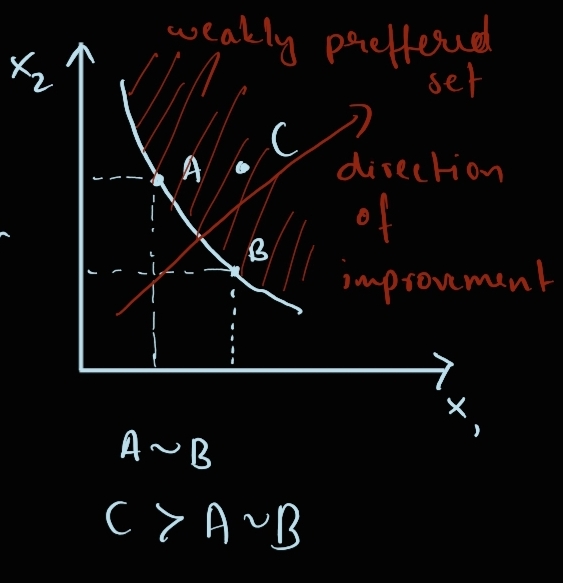 weakly preffered
set
x₂
C
A
direction
of
B
improvment
x₁
A ~ B
C > A ~ B